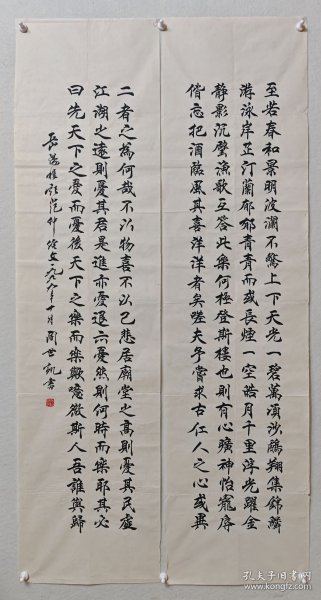 至若春和景明波瀾不驚上下天光一碧萬頃沙鷗翔集錦鱗
游泳岸芷汀蘭郁郁青青而或長煙一空皓月千里浮光躍金
靜影沉璧漁歌互答此樂何極登斯樓也則有心曠神怡寵辱
偕忘把酒臨風其喜洋洋者矣嗟夫予嘗求古仁人之心或異
二者之為何哉不以物喜不以己悲居廟堂之高則憂其民處
江湖之遠則憂其君是進亦憂退亦憂然則何時而樂耶其必
曰先天下之憂而憂後天下之樂而樂歟噫微斯人吾誰與歸
岳陽樓記范仲淹文一九九年十月 世凱書
孔夫子旧书网